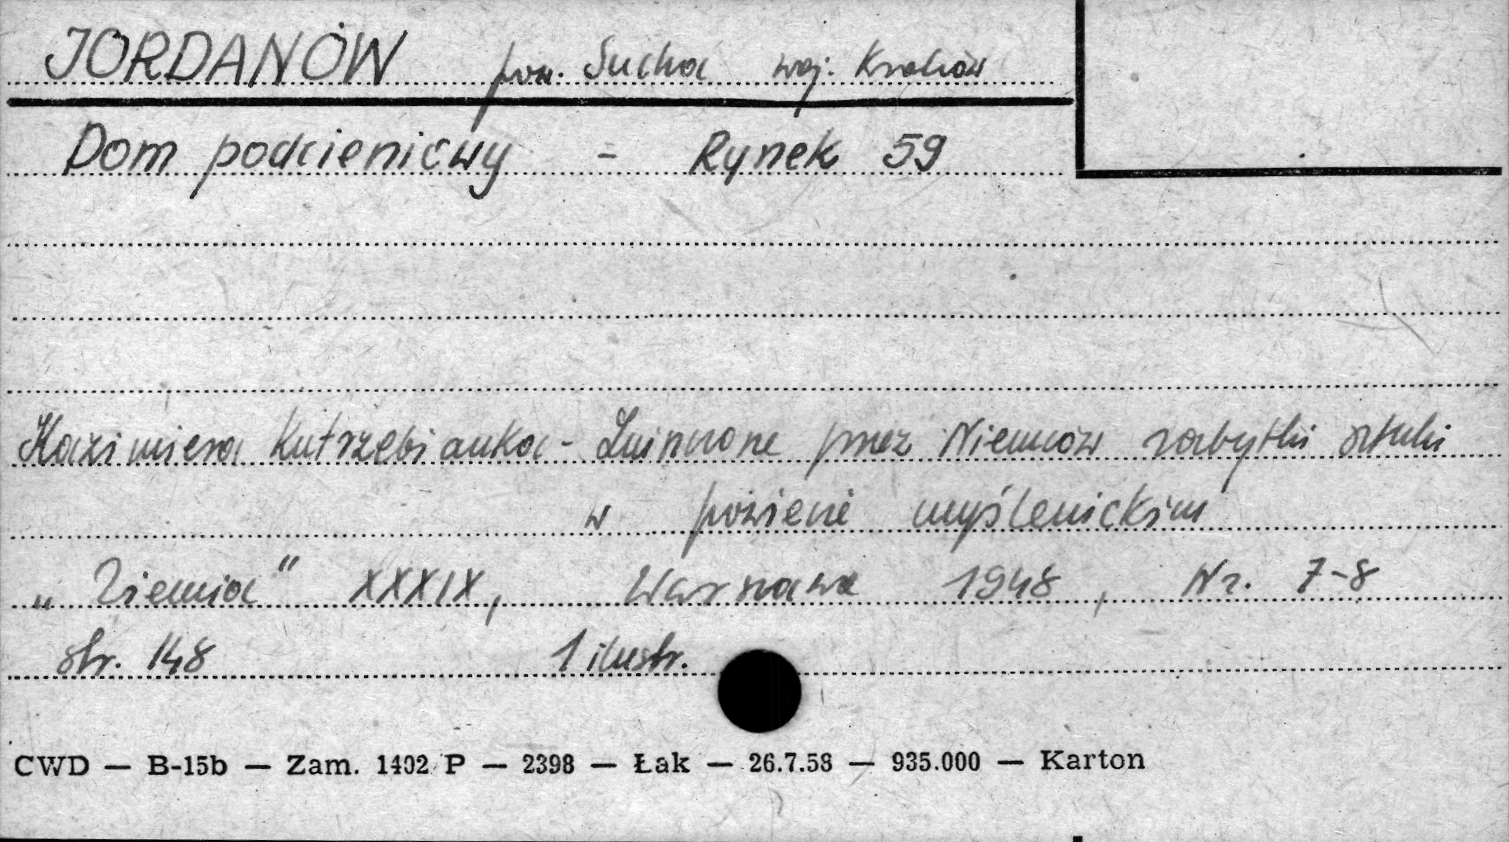 JORDANÓW pow. Sucha woj. Kraków
Dom podcieniowy - Rynek 59
Kazimiera Kutrzebianka - Zniszczone przez Niemców zabytki sztuki
w powiecie myślenickim
„Ziemia" XXXIX, Warszawa 1948, Nr. 7-8
str. 148 1 ilustr.
CWD — B-15b — Zam. 1402 P — 2398 — Łak — 26.7.58 — 935.000 — Karton